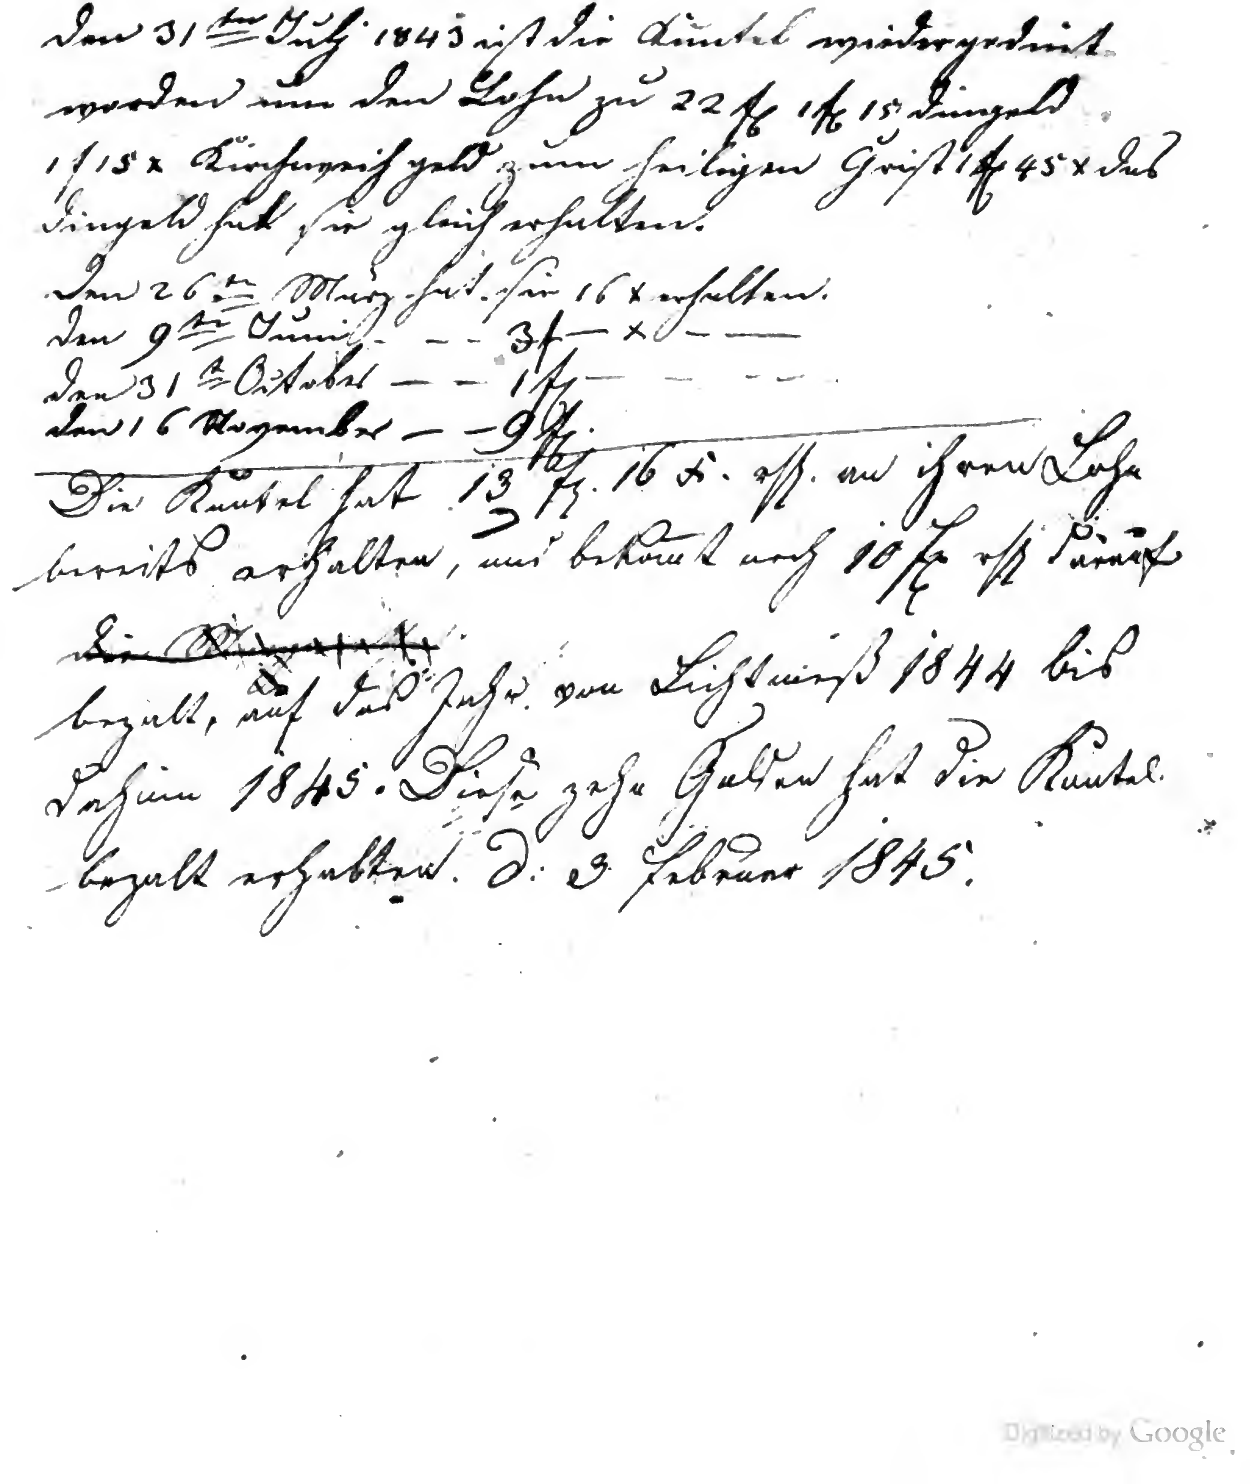 den 31ten Julj 1843 ist die Kuntel wieder gedint
worden um den Lohn zu 22 fl 1 fl 15 dingeld
1 f 15 x Kirchweih geld zum heiligen Grist 1 fl 45 x das
dingeld hat sie gleich erhalten.
den 26ten März hat sie 16 x erhalten.
den 9ten Juni - - - 3 f — x - —
den 31t October — - 1 fl — - - -
den 16 November — - 9 fl.
Die Kuntel hat 13 fl. 16 x. an ihren Lohn
bereits erhalten, und bekomt noch 10 fl darauf
die
bezalt, auf das Jahr von Lichtmeß 1844 bis
dahinn 1845. Diese zehn Gulden hat die Kuntel
bezalt erhalten. D: 3 Februar 1845.
Digitized by Google